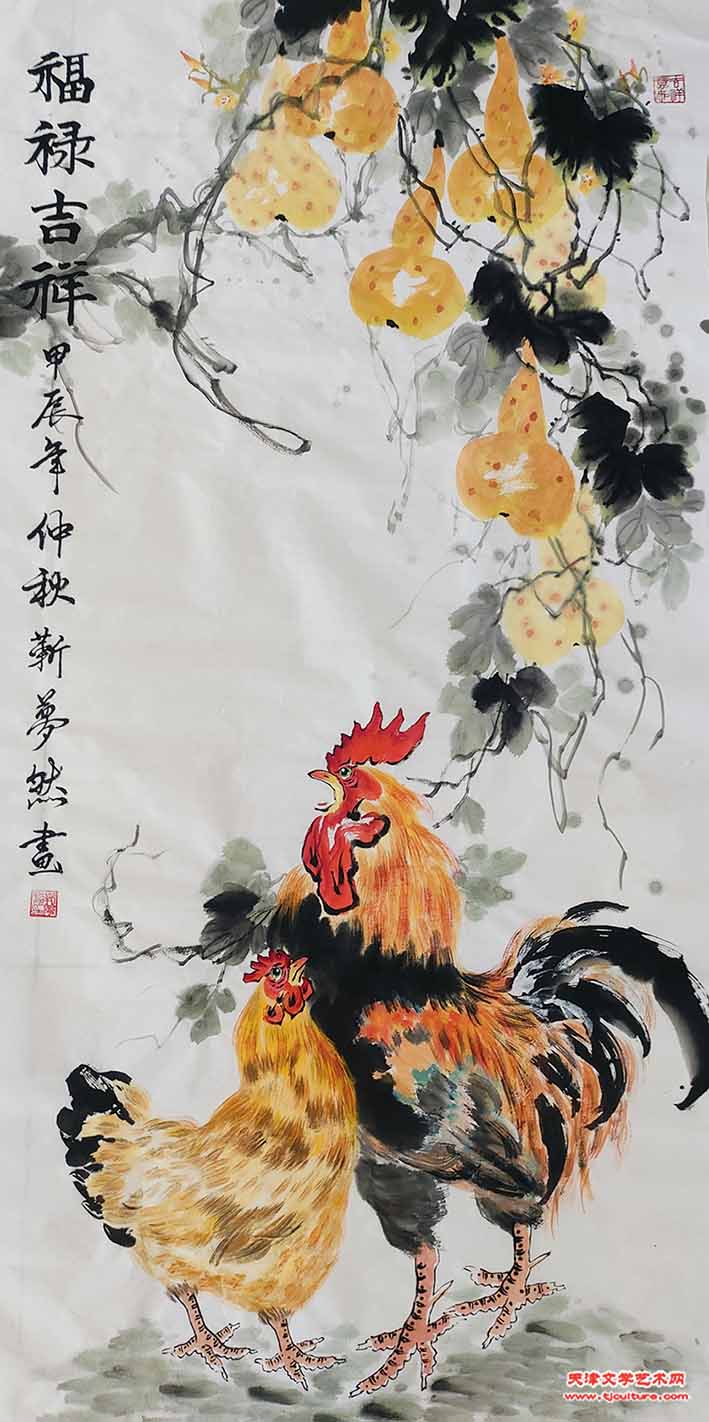 福禄吉祥
甲辰年仲秋靳夢然畫
天津文学艺术网
www.tjculture.com